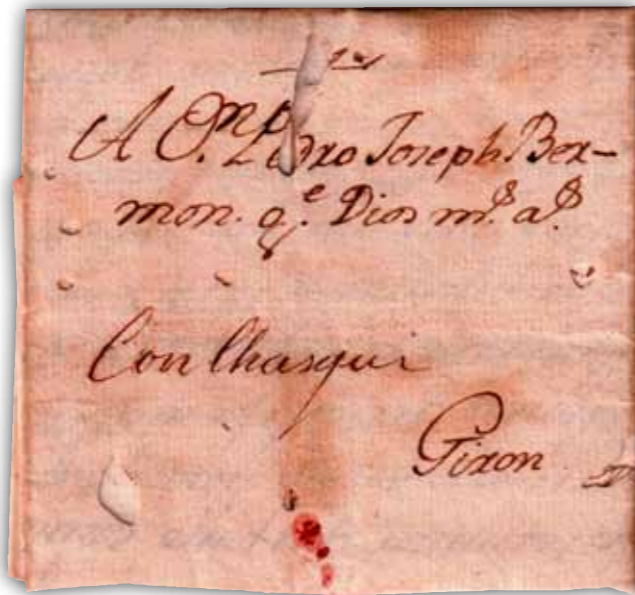 A D.ⁿ Pedro Joseph. Ber-
mon. q.ᵉ Dios m.ˢ a.ˢ
Con Chasqui
Giron